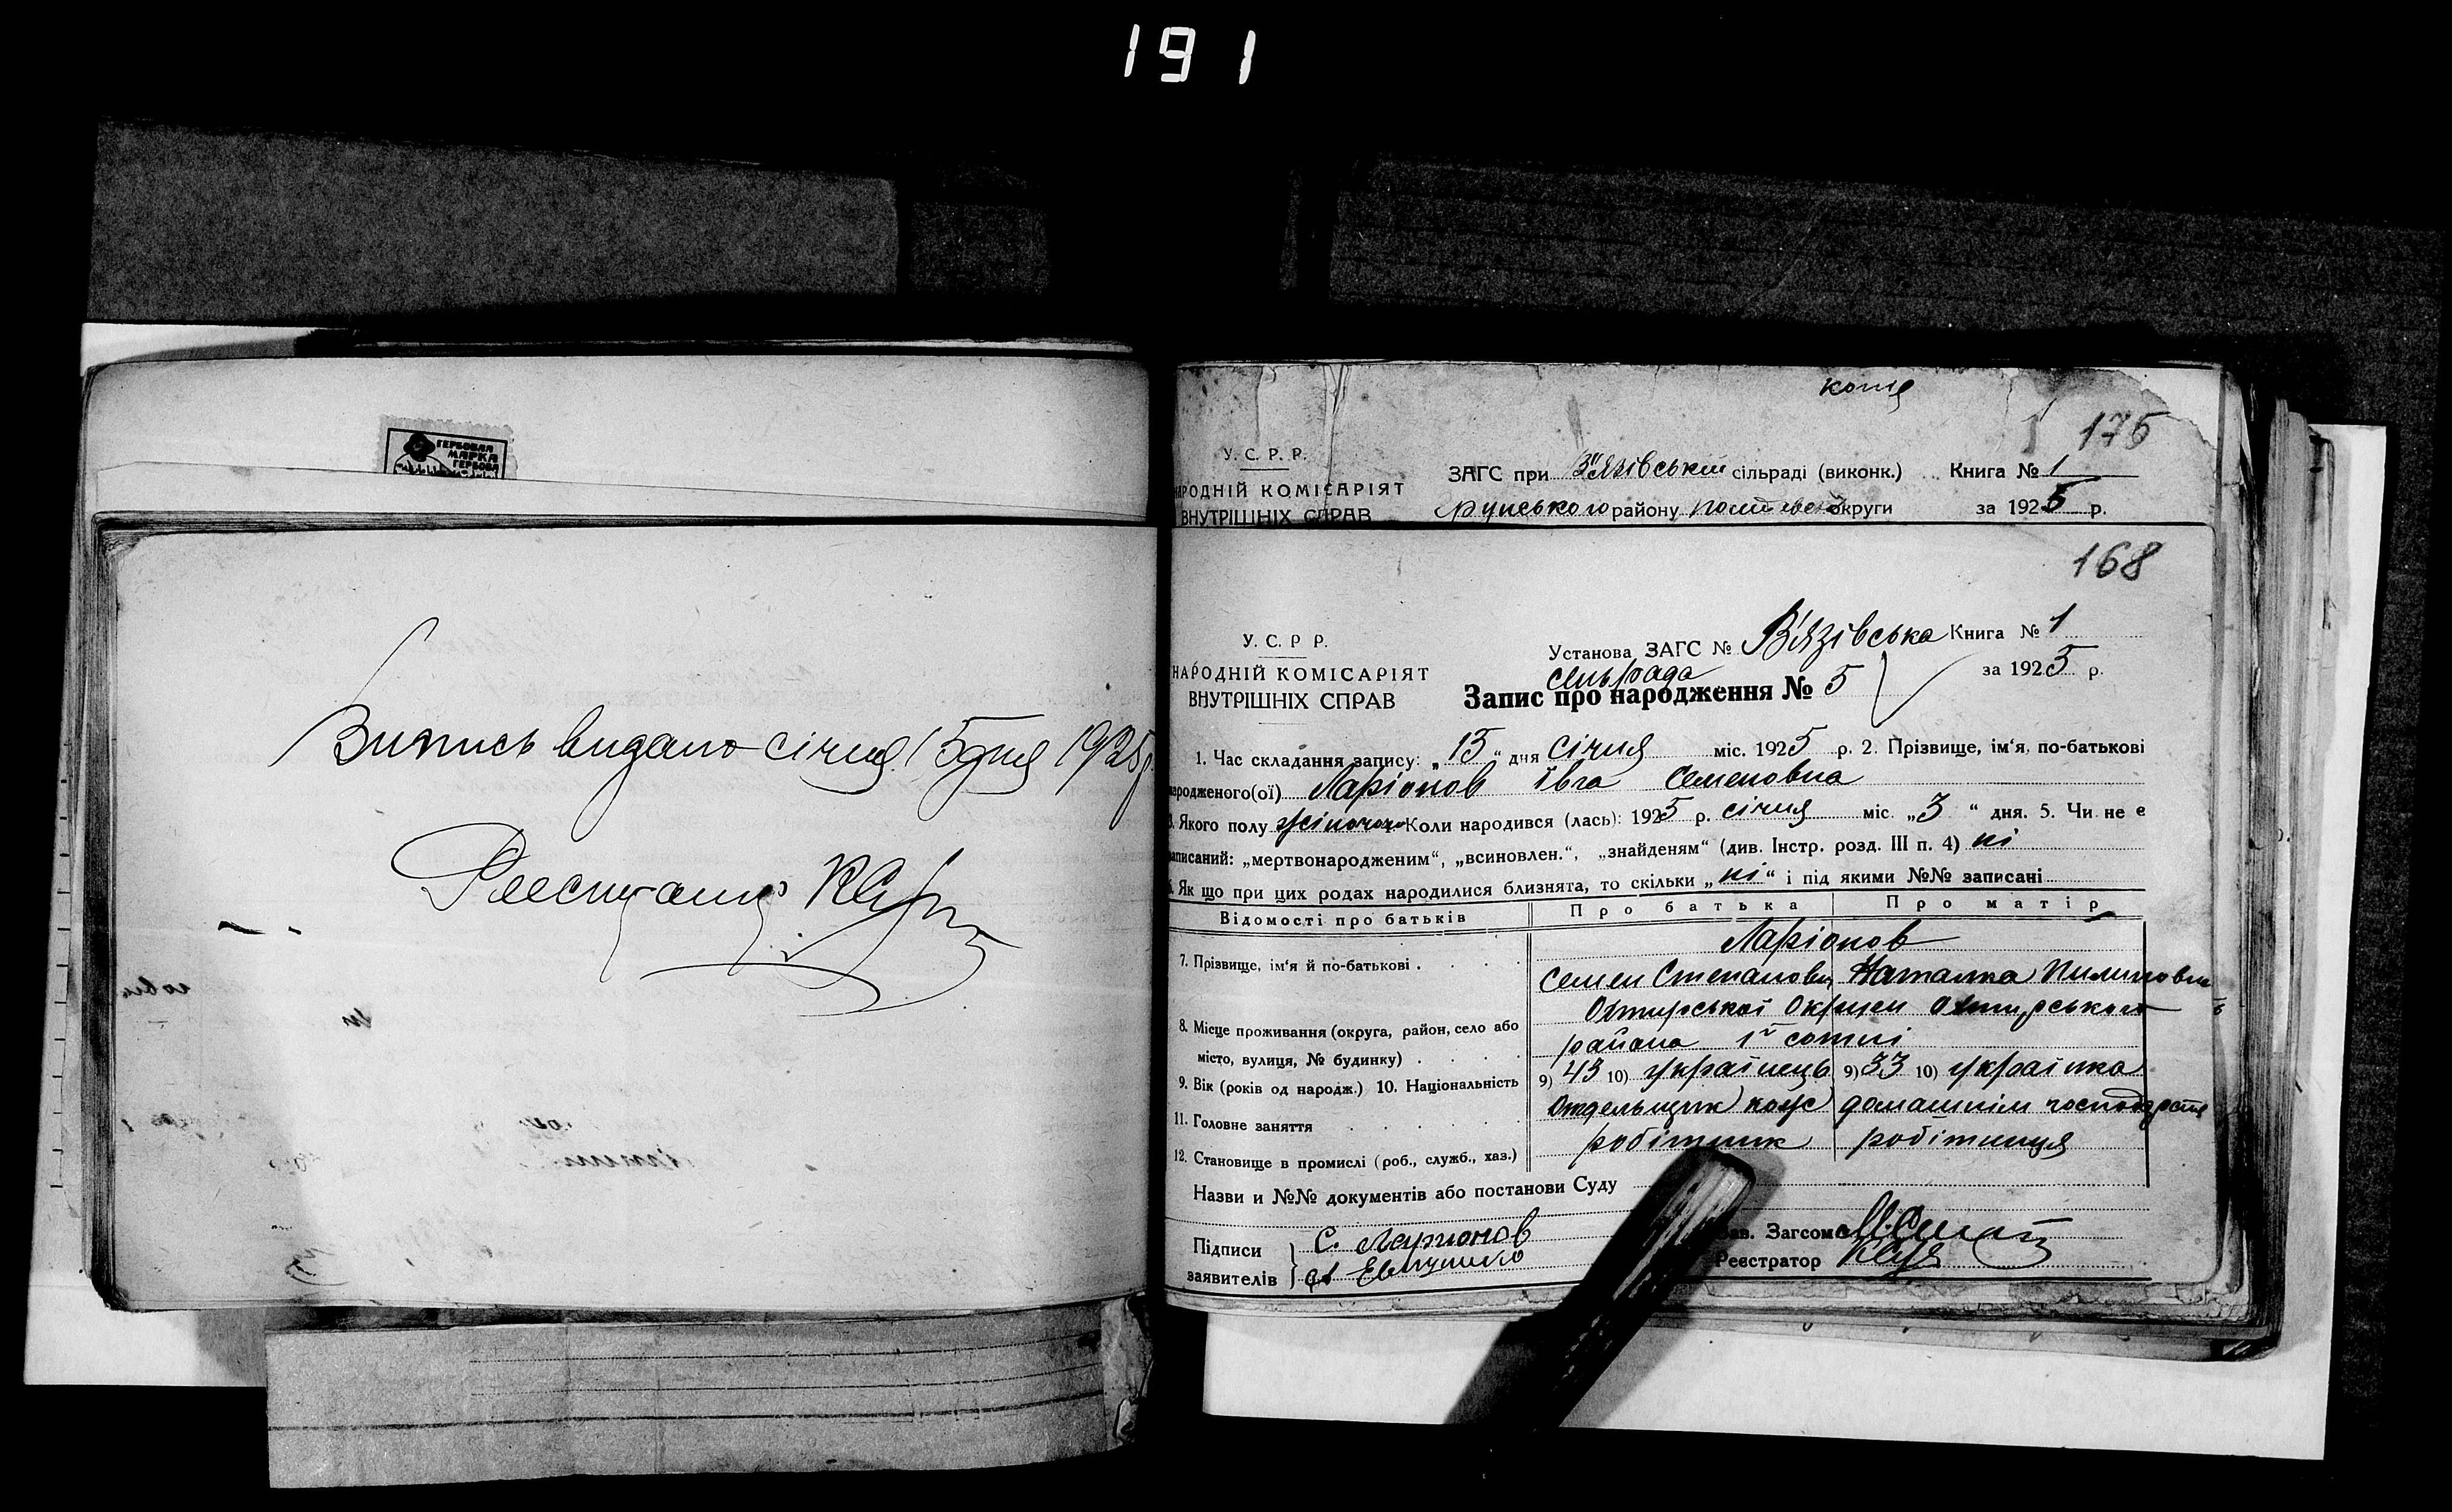 191
ГЕРБОВАЯ
МАРКА
ГЕРБОВА
Випись видано січня 15 дня 1925 р.
Реєстратор
копія
175
У. С. Р. Р.
НАРОДНІЙ КОМІСАРІЯТ
ВНУТРІШНІХ СПРАВ
ЗАГС при В'язівській сільраді (виконк.) Книга № 1
рунського району округи за 1925 р.
168
У. С. Р Р.
НАРОДНІЙ КОМІСАРІЯТ
ВНУТРІШНІХ СПРАВ
Установа ЗАГС № В'язівська Книга № 1
сельрада за 1925 р.
Запис про народження № 5
1. Час складання запису: „15“ дня січня міс. 1925 р. 2. Прізвище, ім'я, по-батькові
народженого(ої) Ларіонов Івга Семеновна
3. Якого полу жіночого 4. Коли народився (лась): 1925 р. січня міс. „3“ дня. 5. Чи не є
записаний: „мертвонародженим“, „всиновлен.“, „знайденям“ (див. Інстр. розд. III п. 4) ні
6. Як що при цих родах народилися близнята, то скільки „ні“ і під якими №№ записані
Відомості про батьків Про батька Про матір
7. Прізвище, ім'я й по-батькові . Ларіонов
Семен Степанович Наталка Пилиповна
8. Місце проживання (округа, район, село або
місто, вулиця, № будинку) .
Охтирської Округи Охтирського
района 1ї сотні
9. Вік (років од народж.) 10. Національність 9) 43 10) українець 9) 33 10) українка
11. Головне заняття домашнім
12. Становище в промислі (роб., служб., хаз.) робітник робітниця
Назви и №№ документів або постанови Суду
Підписи
заявителів
С. Ларионов
Зав. Загсом
Реєстратор